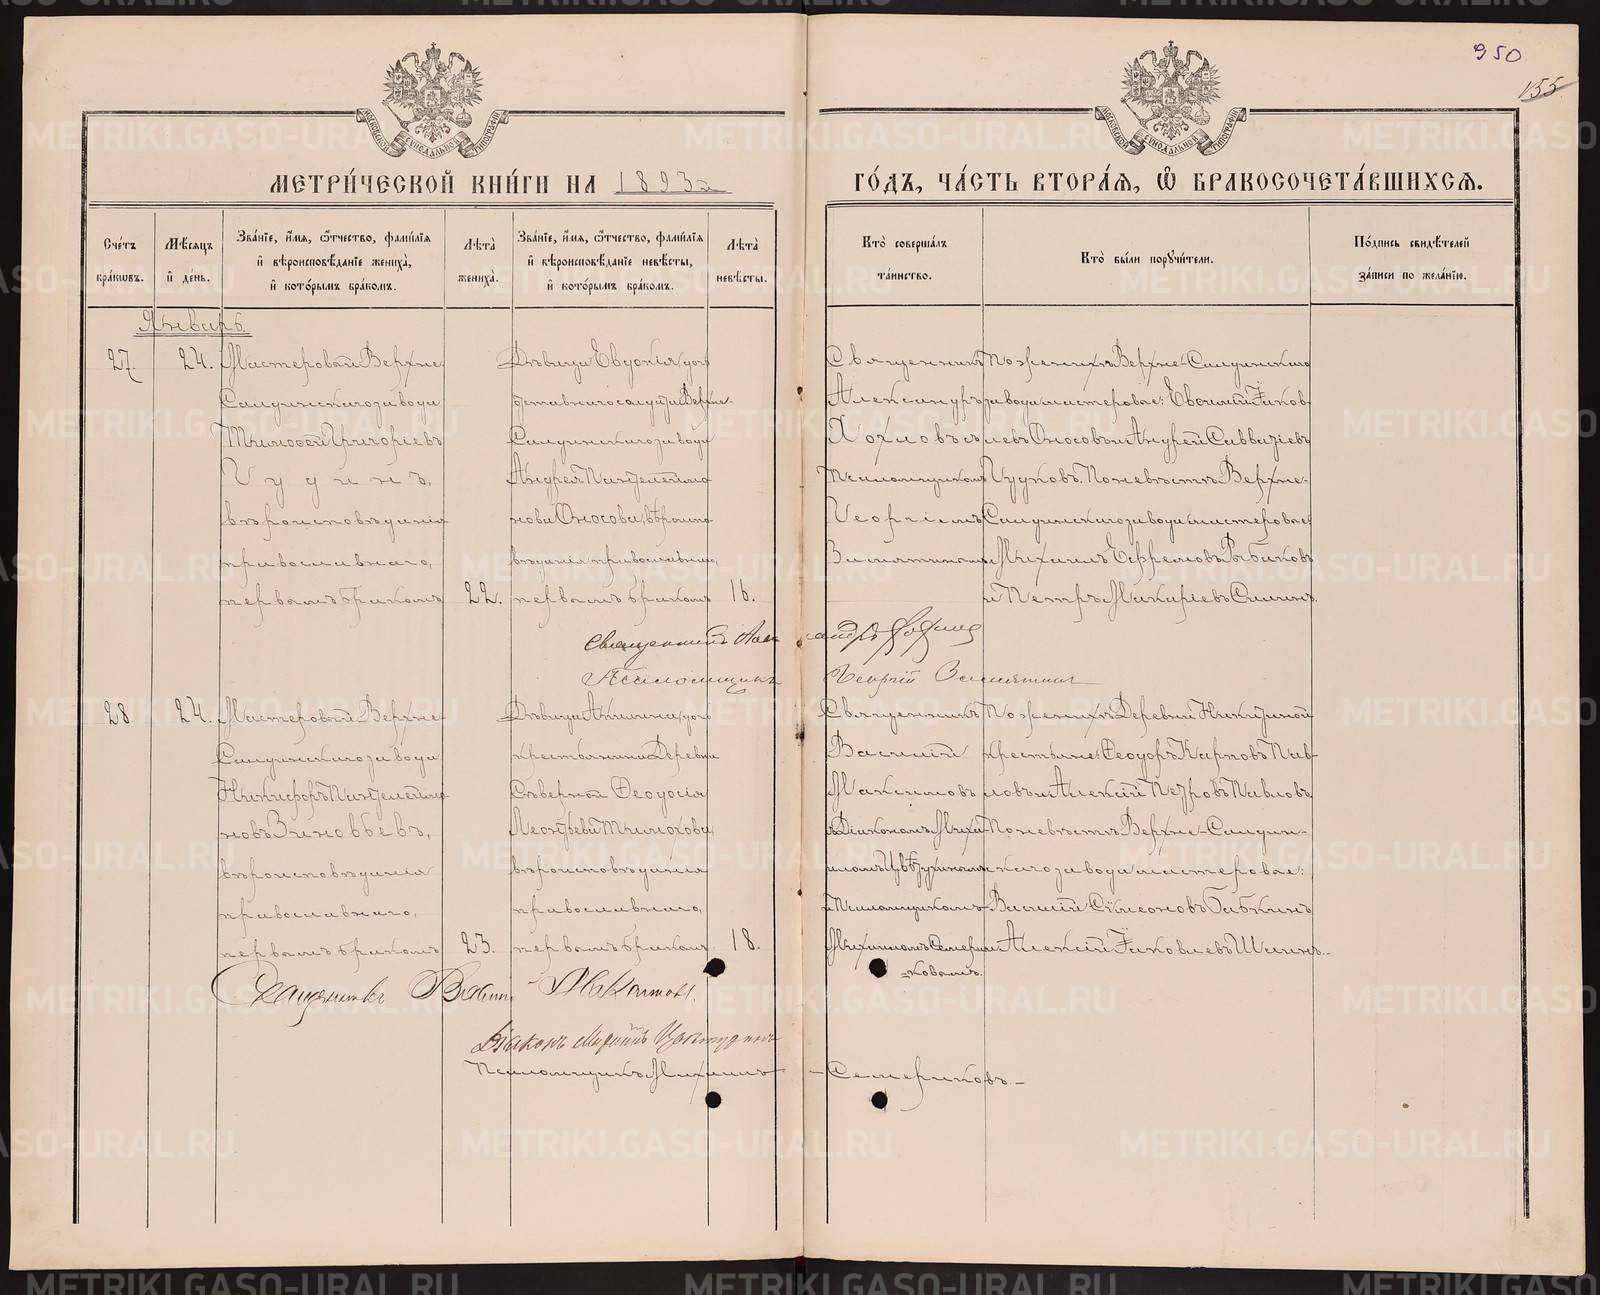 950
155
МОСКОВСКОЙ СѴНОДАЛЬНОЙ ТИПОГРАФІИ
МОСКОВСКОЙ СѴНОДАЛЬНОЙ ТИПОГРАФІИ
МЕТРИ́ЧЕСКОЙ КНИ́ГИ НА 1893й
ГО́ДЪ, ЧА́СТЬ ВТОРА́Я, Ѽ БРАКОСОЧЕТА́ВШИХСЯ.
Сче́тъ бра́кѡвъ.
Мѣ́сяцъ и҆ де́нь.
Зва́нїе, и҆́мя, ѻ҆́тчество, фами́лїя
и҆ вѣроисповѣ́данїе жениха̀,
и҆ кото́рымъ бра́комъ.
Лѣта̀ жениха̀.
Зва́нїе, и҆́мя, ѻ҆́тчество, фами́лїя
и҆ вѣроисповѣ́данїе невѣ́сты,
и҆ кото́рымъ бра́комъ.
Лѣта̀ невѣ́сты.
Кто̀ соверша́лъ
та́инство.
Кто̀ бы́ли порꙋчи́тели.
По́дпись свидѣ́телей
за́писи по жела́нїю.
Январь.
27.
24.
Мастеровой Верхне-
Салдинскаго завода
Тимоѳей Григоріевъ
Чудинъ,
вѣроисповѣданія
православнаго,
первымъ бракомъ
22.
Дѣвица Евдокія, дочь
отставного солдата Верхне-
Салдинскаго завода
Андрея Пантелеймо-
нова Оносова, вѣроиспо-
вѣданія православнаго,
первымъ бракомъ
16.
Священникъ
Александръ
Хохловъ съ
Псаломщикомъ
Георгіемъ
Замятинымъ
По женихѣ Верхне-Салдинскаго
завода мастеровые: Евѳимій Іаков-
левъ Оносовъ и Андрей Савватіевъ
Чудковъ. По невѣстѣ Верхне-
Салдинскаго завода мастеровые:
Михаилъ Ефремовъ Рыбаковъ
и Петръ Макаріевъ Силинъ.
Священникъ Александръ Хохловъ
Псаломщикъ Георгій Замятинъ
28
24.
Мастеровой Верхне-
Салдинскаго завода
Никифоръ Пантелеймо-
новъ Зиновьевъ,
вѣроисповѣданія
православнаго,
первымъ бракомъ
23.
Дѣвица Акилина, дочь
крестьянина Деревни
Сѣверной Ѳеодосія
Леонтьева Тимохова,
вѣроисповѣданія
православнаго,
первымъ бракомъ
18.
Священникъ
Василій
Максимовъ
съ Діакономъ Михаи-
ломъ Цвѣтухинымъ
и Псаломщикомъ
Михаиломъ Семери-
ковымъ.
По женихѣ Деревни Никитиной
крестьяне: Ѳеодоръ Карповъ Пав-
ловъ и Алексій Петровъ Павловъ.
По невѣстѣ Верхне-Салдин-
скаго завода мастеровые:
Василій Сѵмеоновъ Бабкинъ
и Алексій Іаковлевъ Шилинъ.
Священникъ Василій Максимовъ.
Діаконъ Михаилъ Цвѣтухинъ
Псаломщикъ Михаилъ Семериковъ.
METRIKI.GASO-URAL.RU